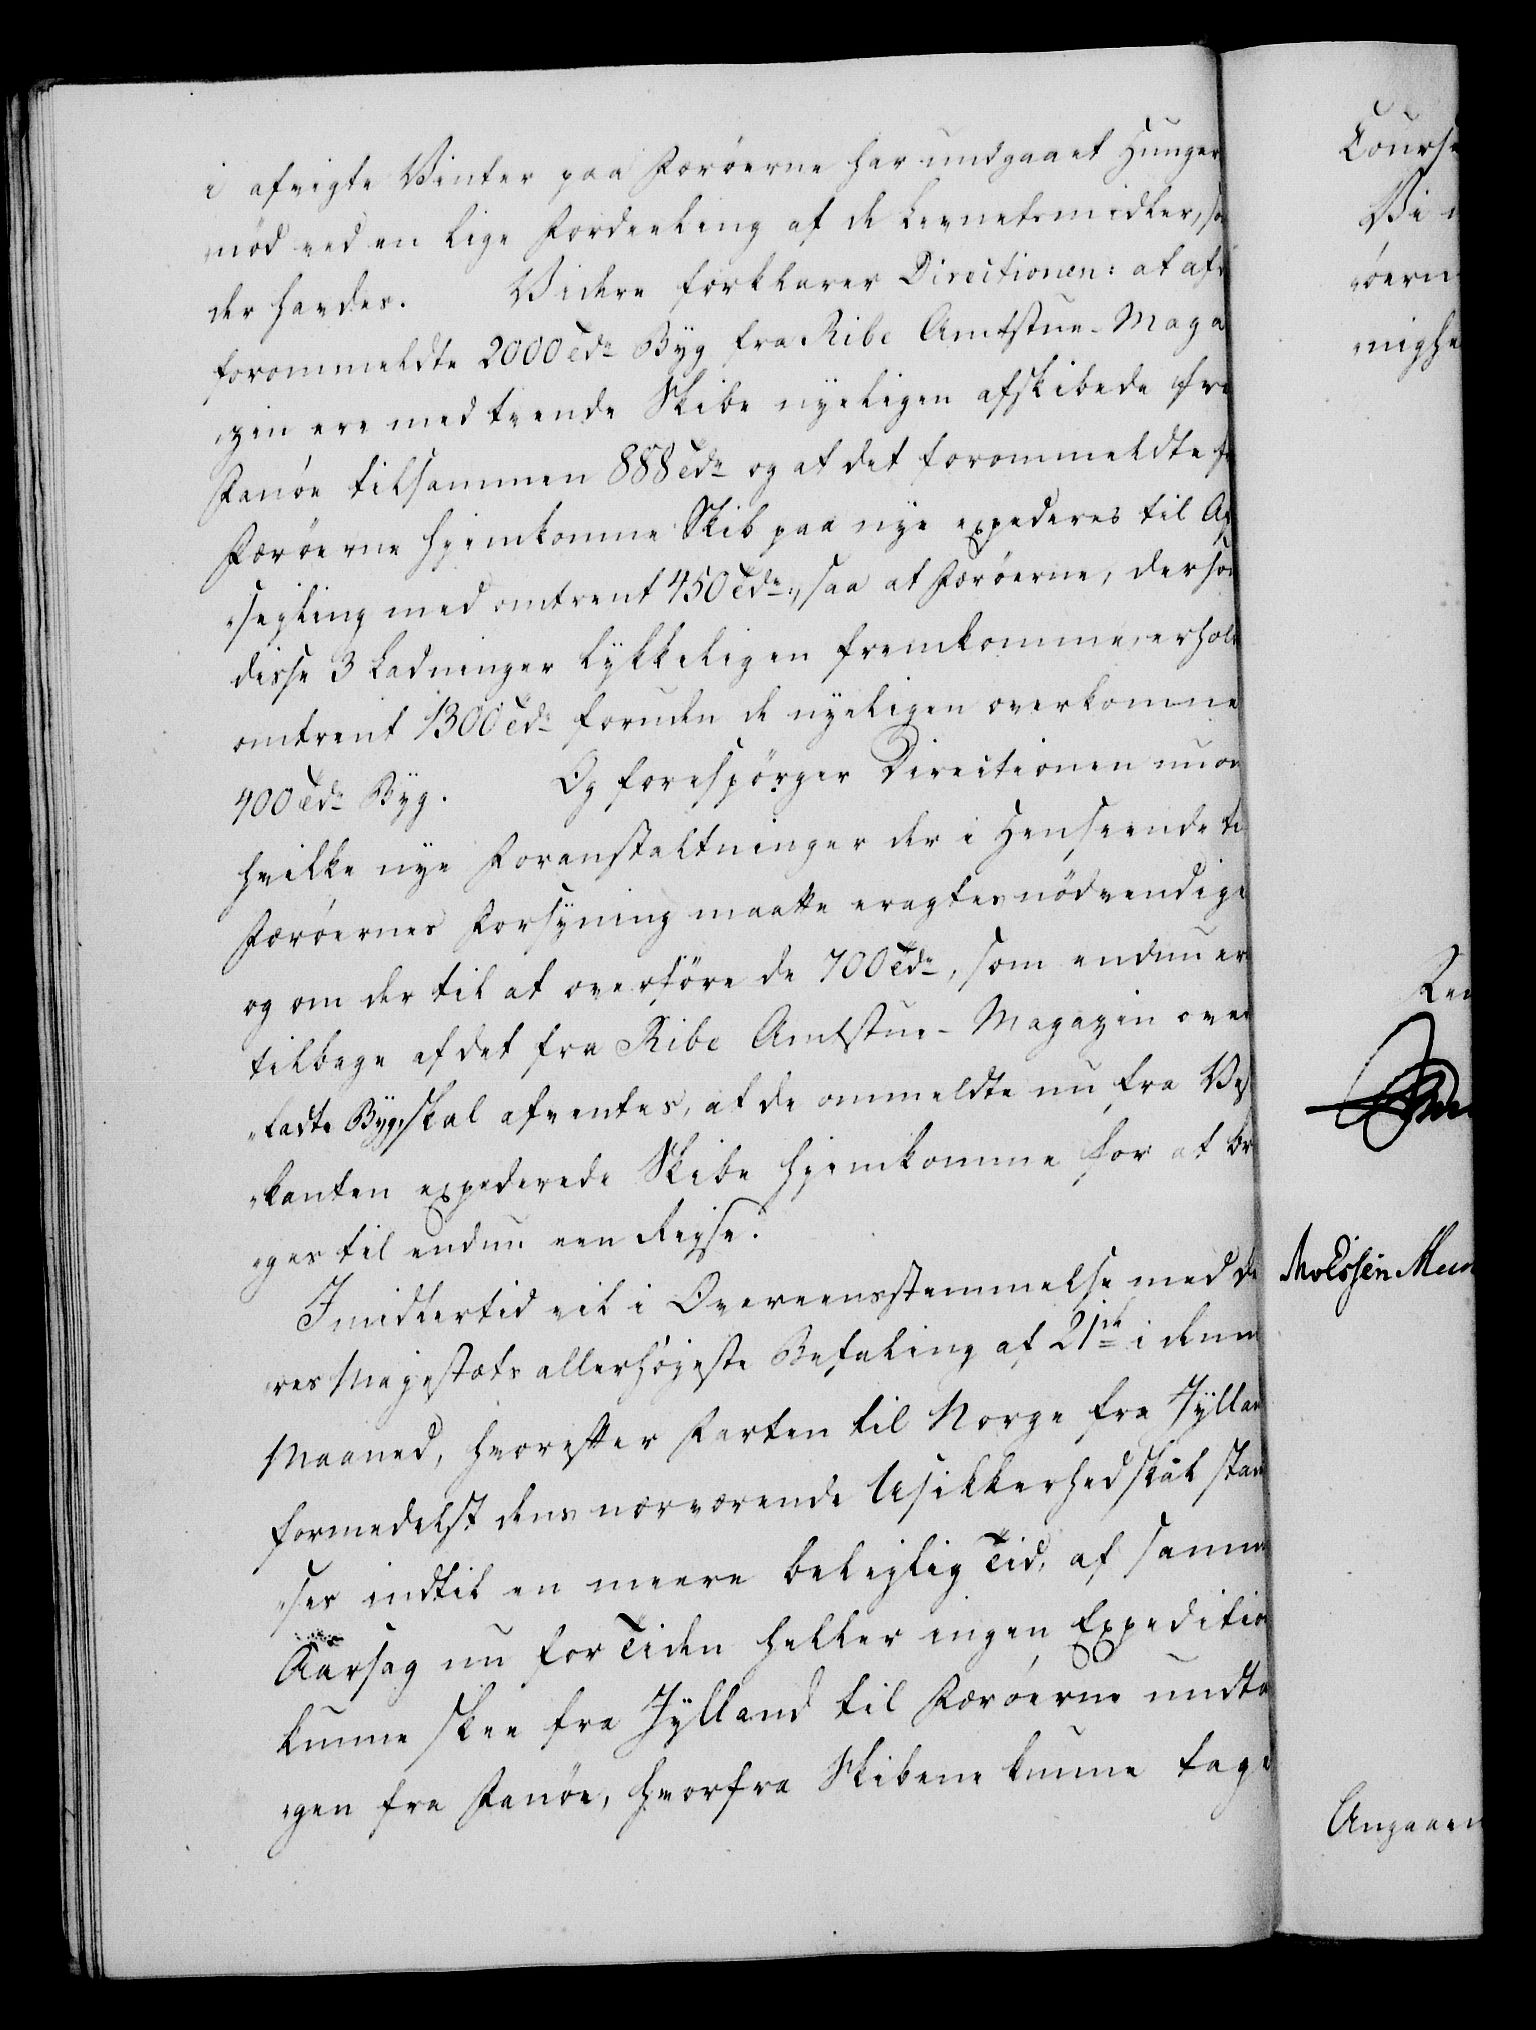 i afvigte Vinter paa Færöerne har undgaaet Hunger
nöd ved en lige Fordeeling af de Levnetsmidler, so
der havdes. Videre forklarer Directionen: at af
forommeldte 2000 Tdr Byg fra Ribe Amtstue-Maga
"zin ere med tvende Skibe nyeligen afskibede fra
Fanöe tilsammen 888 Tdr og at det forommeldte fr
Færöerne hjemkomne Skib paa nye expederes til Af
"segling med omtrent 450 Tdr, saa at Færöerne, dersom
disse 3 Ladninger lykkeligen fremkomme, erhold
omtrent 1300 Tdr foruden de nyeligen overkomne
400 Tdr Byg. Og forespörger Directionen nu om
hvilke nye Foranstaltninger der i Henseende til
Færöernes Forsyning maatte eragtes nödvendige
og om der til at overföre de 700 Tdr, som endnu er
tilbage af det fra Ribe Amtstue-Magazin over
"ladte Byg, skal afventes, at de ommeldte nu fra Vest
"kanten expederede Skibe hjemkomme for at br
"ges til endnu een Reyse.
Imidlertid vil i Overeensstemmelse med De
res Majestæts allerhöjeste Befaling af 21de i denne
Maaned, hvorefter Farten til Norge fra Jylland
formedelst dens nærværende Usikkerhed skal stand
"ses indtil en meere beleylig Tid, af samme
Aarsag nu for Tiden heller ingen Expedition
kunne skee fra Jylland til Færöerne undta
"gen fra Fanöe, hvorfra Skibene kunne tage
Course
Vi
röern
mighe
Molssen
Angaaen